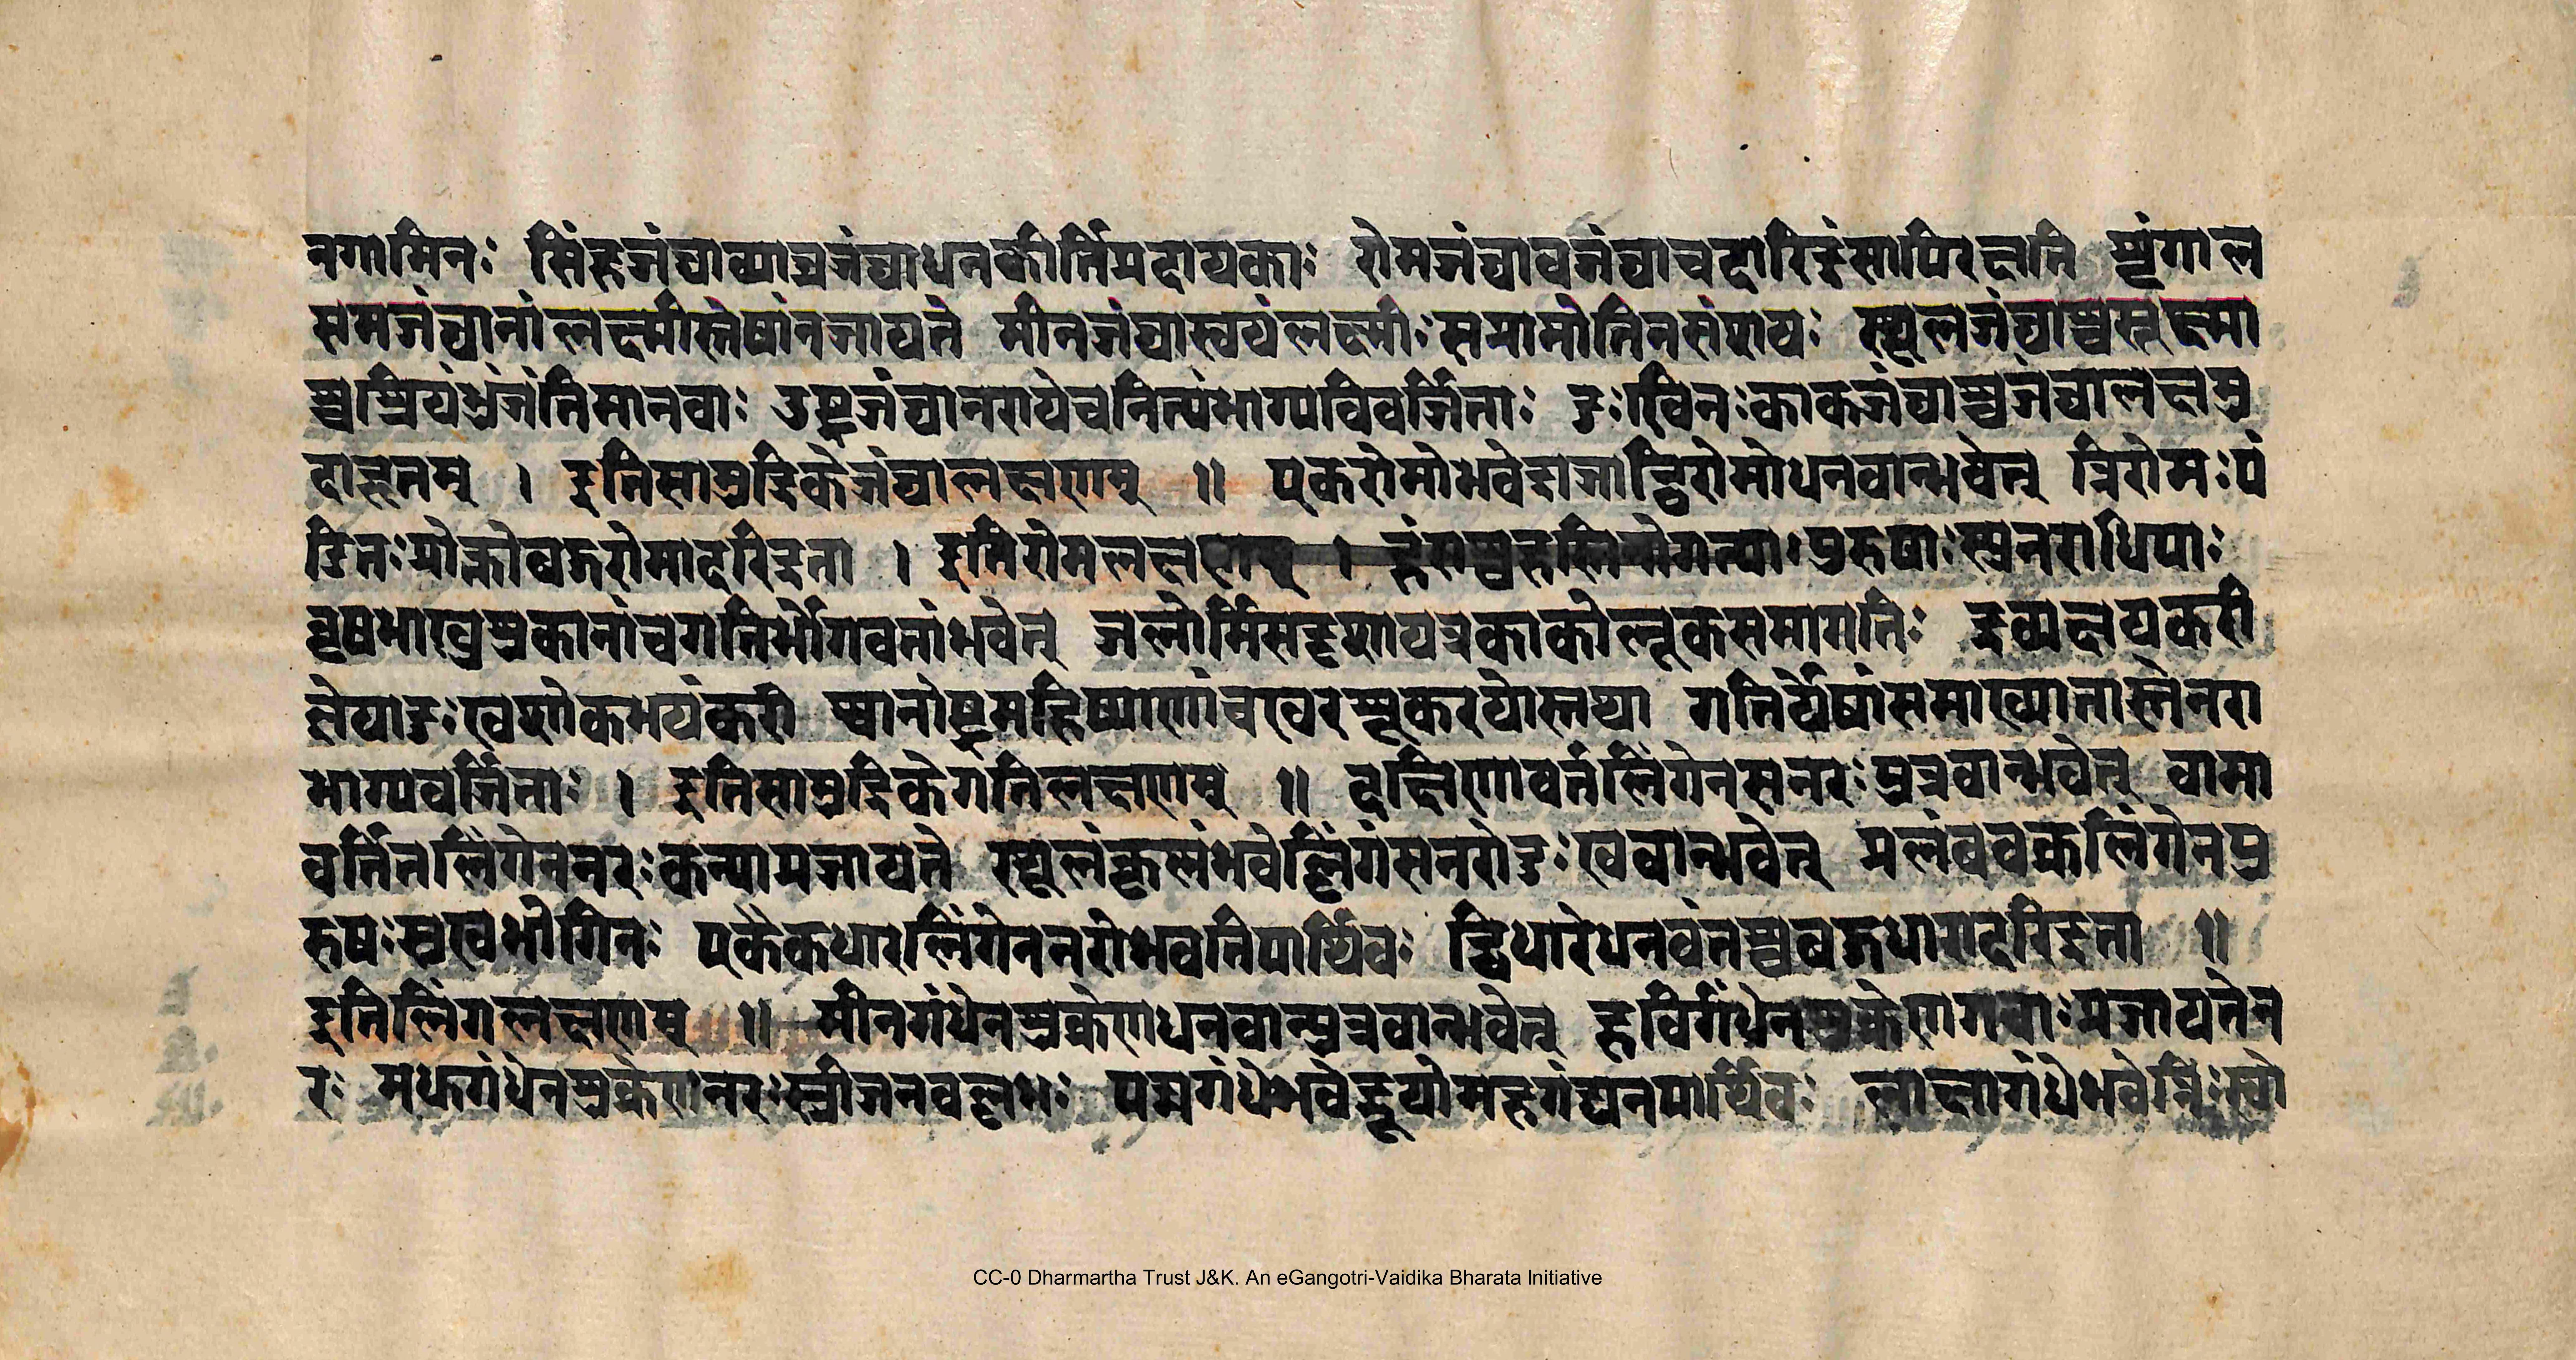 नगामिनः सिंहजंघाव्याघ्रजंघाधनकीर्तिप्रदायकाः रोमजंघावजंघाचदारिद्रंसापिरक्षति सृंगाल
समजंघानांलक्ष्मीस्तेषांनजायते मीनजंघास्वयंलक्ष्मीःसप्राप्नोतिनसंशयः स्थूलजंघाश्चसूक्ष्मा
श्चश्रियंभुंजंतिमानवाः उष्ट्रजंघानरायेचनित्यंभाग्यविवर्जिताः दुःखिनःकाकजंघाश्चजंघालक्षमु
दाहृतम् । इतिसामुद्रिकेजंघालक्षणम् ॥ एकरोमोभवेद्राजाद्विरोमोधनवान्भवेत् त्रिरोमःपं
डितःप्रोक्तोबहुरोमादरिद्रता । इतिरोमलक्षणम् । हंसश्चहस्ति पुरुषाःस्युनराधिपाः
वृषभाखुशुकानांचगतिर्भोगवतांभवेत् जलोर्मिसदृशायत्रकाकोलूकसमागतिः द्रव्यक्षयकरी
ज्ञेयादुःखशोकभयंकरी श्वानोष्ट्रमहिष्याणांचखरसूकरयोस्तथा गतिर्येषांसमाख्यातास्तेनरा
भाग्यवर्जिताः । इतिसामुद्रिकेगतिलक्षणम् ॥ दक्षिणावर्तलिंगेनसनरःपुत्रवान्भवेत् वामा
वर्तितलिंगेननरःकन्याप्रजायते स्थूलंकृलंभवेल्लिंगंसनरोदुःखवान्भवेत् प्रलंबवक्रलिंगेनपु
रुषःसुखभोगिनः एकैकधारलिंगेननरोभवतिपार्थिवः द्विधारेधनवंतश्चबहुधारादरिद्रता ॥
इतिलिंगलक्षणम् ॥ मीनगंधेनशुक्रेणधनवान्पुत्रवान्भवेत् हविर्गंधेनशुक्रेणगवाःप्रजायतेन
रः मधगंधेनशुक्रेणनरःस्त्रीजनवल्लभः पद्मगंधेभवेद्भूपोमहगंद्येनपार्थिवः लाक्षागंधेभवेन्निःस्वो
CC-0 Dharmartha Trust J&K. An eGangotri-Vaidika Bharata Initiative